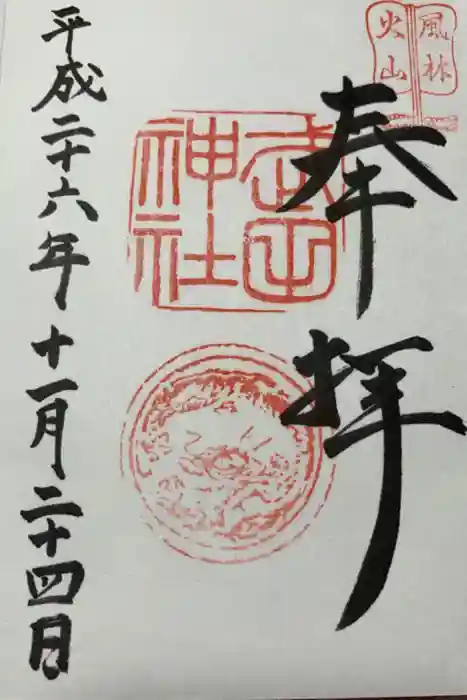 風林
火山
奉拝
武田
神社
平成二十六年十一月二十四日